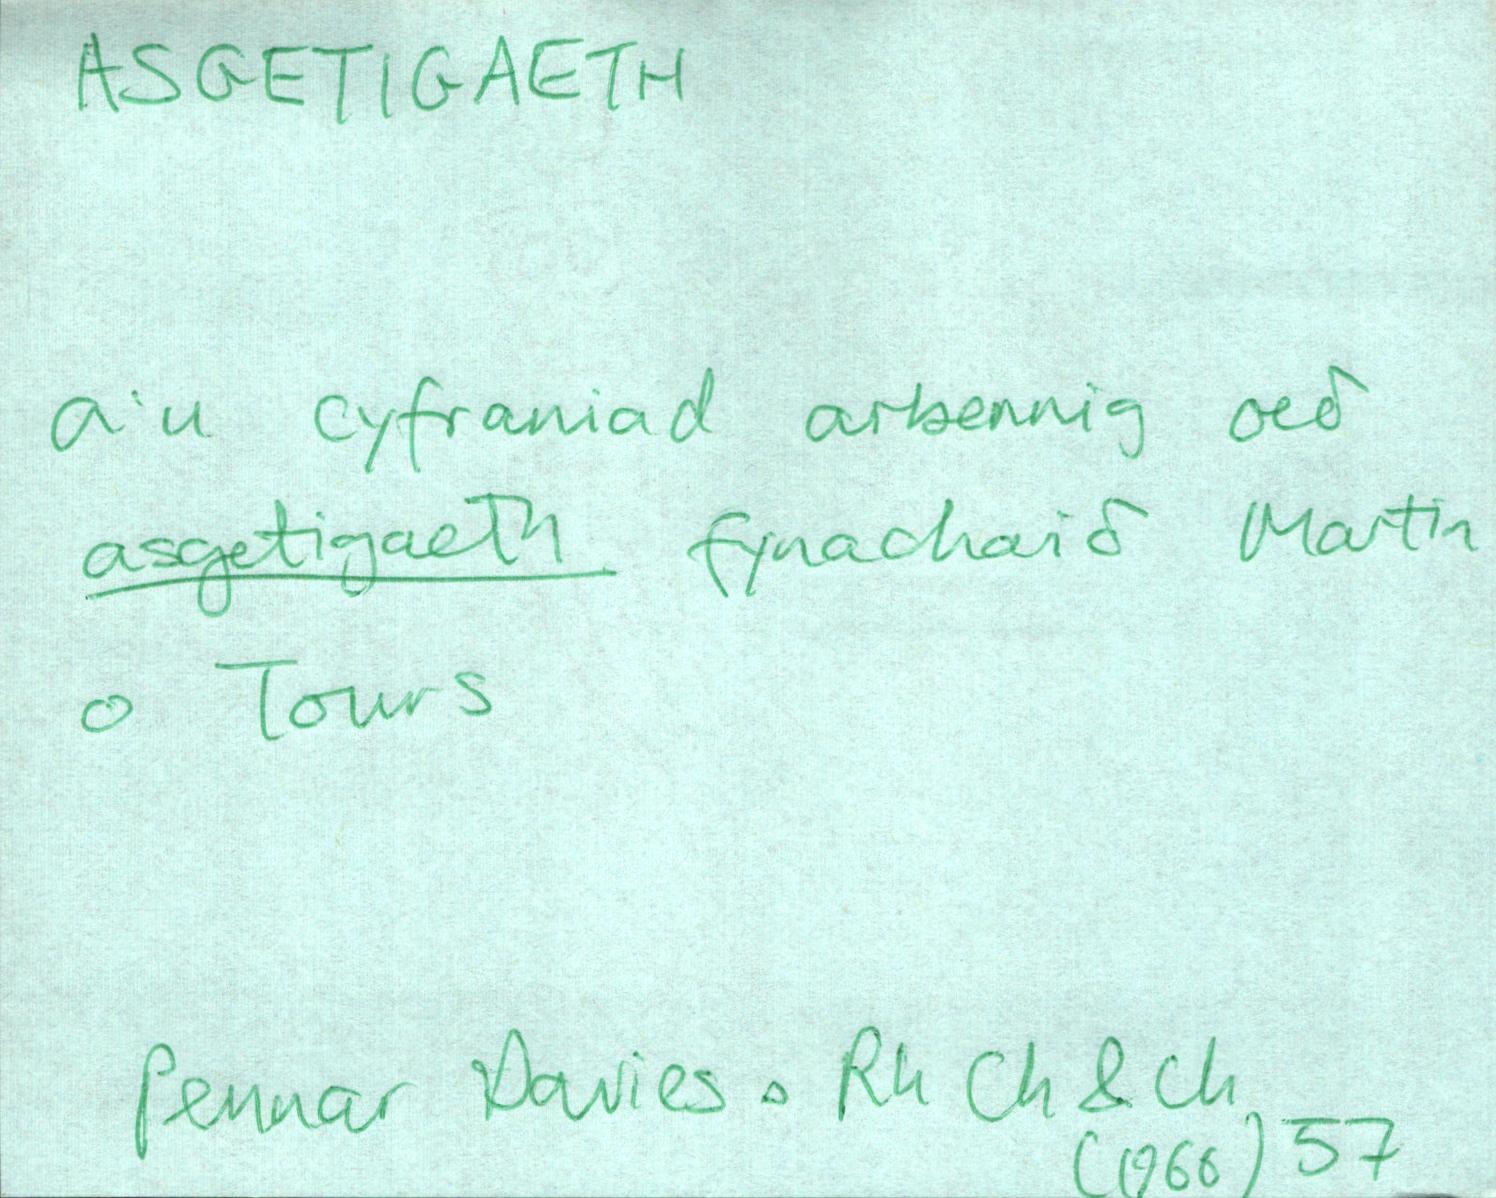 ASGETIGAETH
a'u cyfraniad arbennig oeδ
asgetigaeth fynachaiδ Martin
o Tours
Pennar Davies. Rh Ch & Ch
(1966) 57